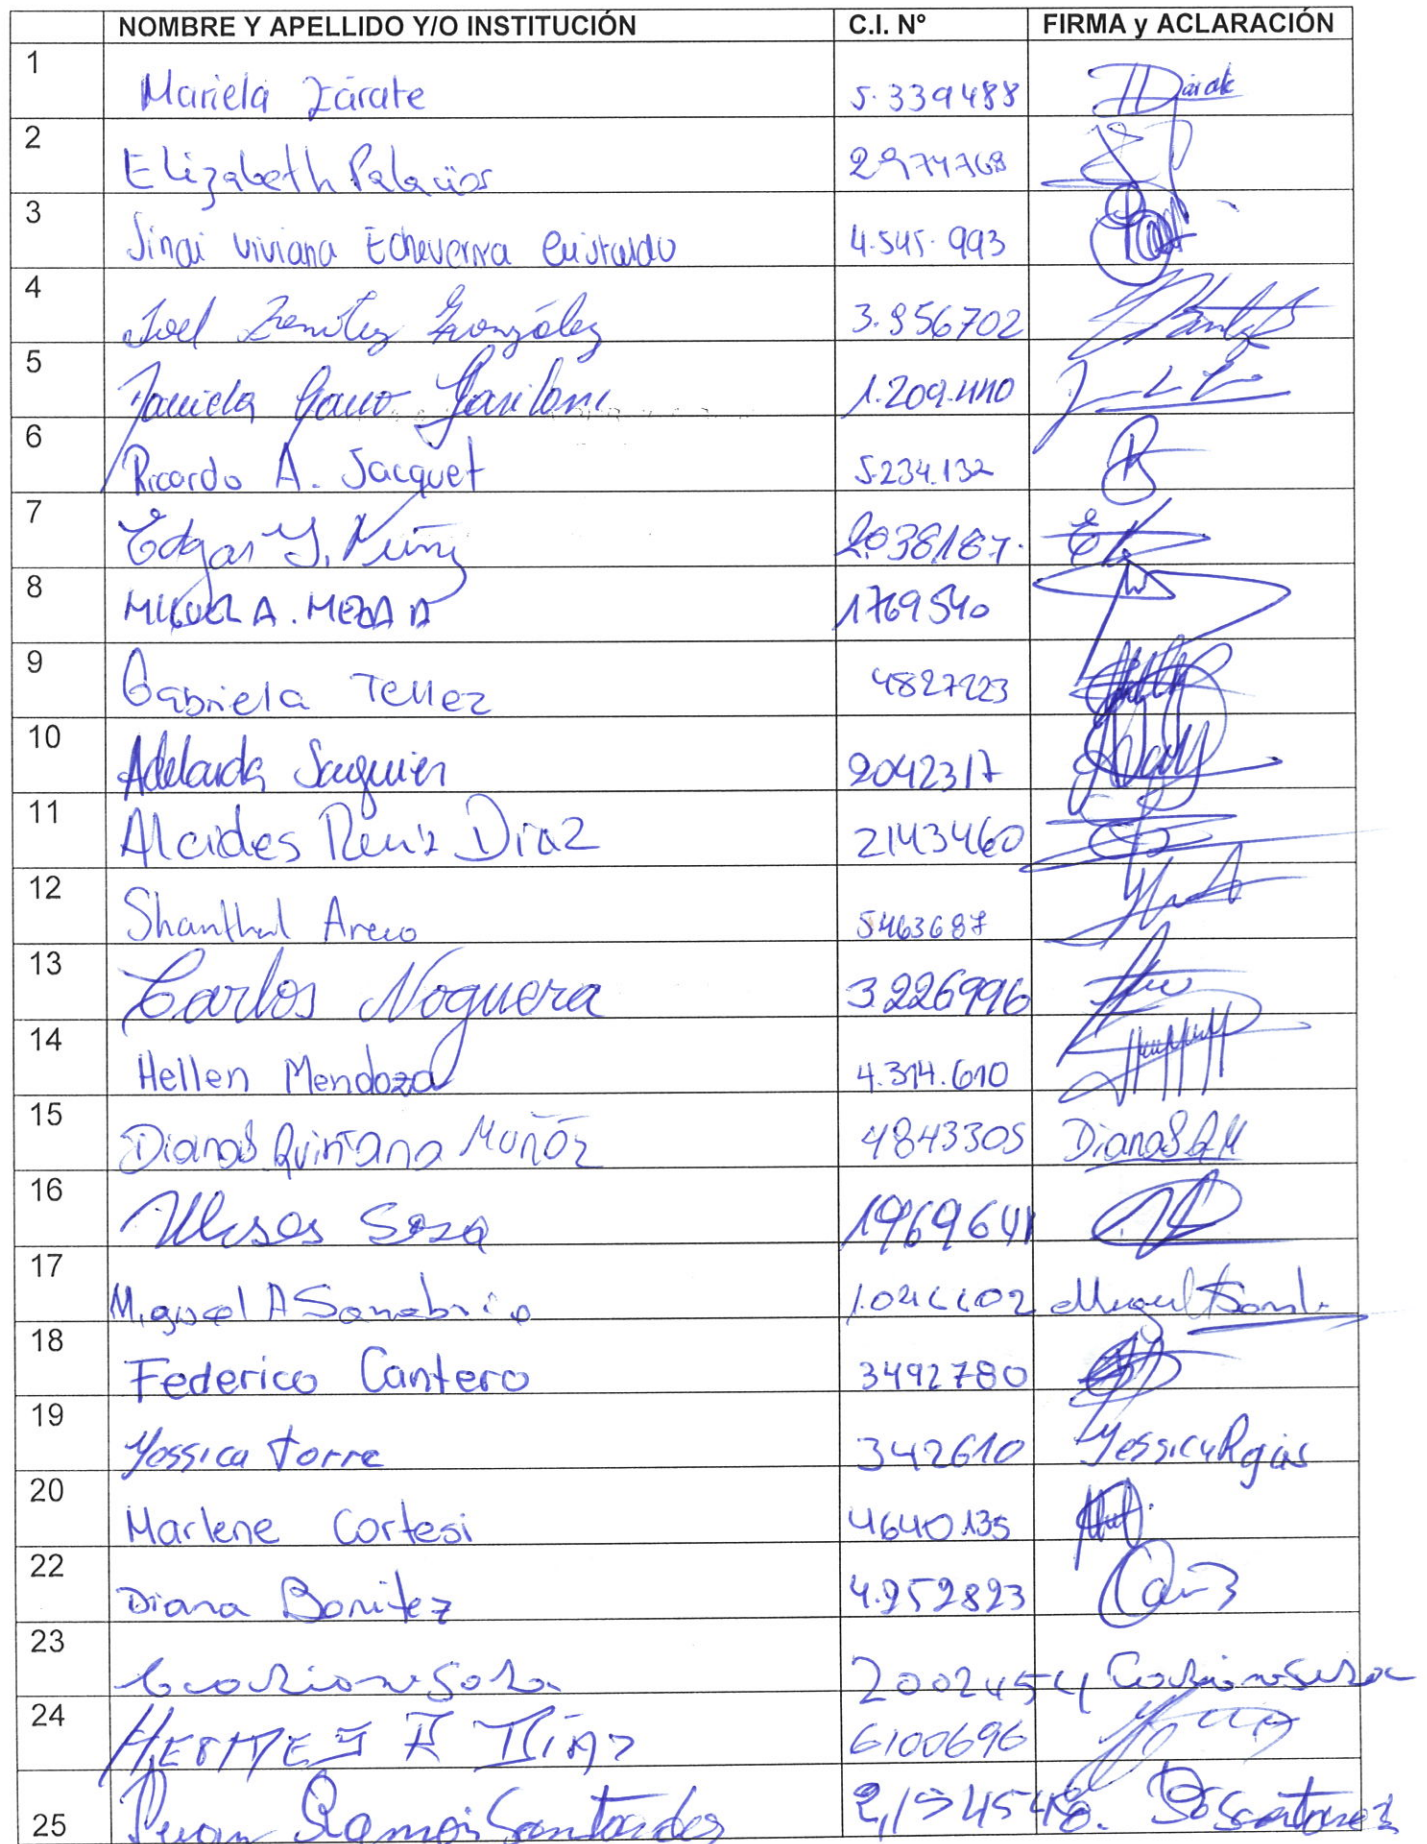 NOMBRE Y APELLIDO Y/O INSTITUCIÓN C.I. Nº FIRMA y ACLARACIÓN
1 Mariela Zárate 5.339488 Zárate
2 Elizabeth Palacios 2974768
3 Sinai Viviana Echeverria 4.545.993
4 Joel Benítez González 3.856702
5 1.209.440
6 Ricardo A. Jacquet 5.234.132
7 Edgar 2.038187.
8 MIGUEL A. MEZA 1769540
9 Gabriela Tellez 4827223
10 Adelaida Saguier 2042317
11 Alcides Ruiz Díaz 2143460
12 Shanthal Areco 5463687
13 Carlos Noguera 3.226996
14 Hellen Mendoza 4.314.610
15 Diana S Quintana Muñóz 4843305 Diana S Q M
16 Ulises Sosa 1969641
17 Miguel A Sanabria Miguel
18 Federico Cantero 3492780
19 Yessica Torre 342610 Yessica Rojas
20 Marlene Cortesi 4640.135
22 Diana Bonitez 4.952823
23 2002454
24 HERMES R DÍAZ 6100696
25 Ramon Santander